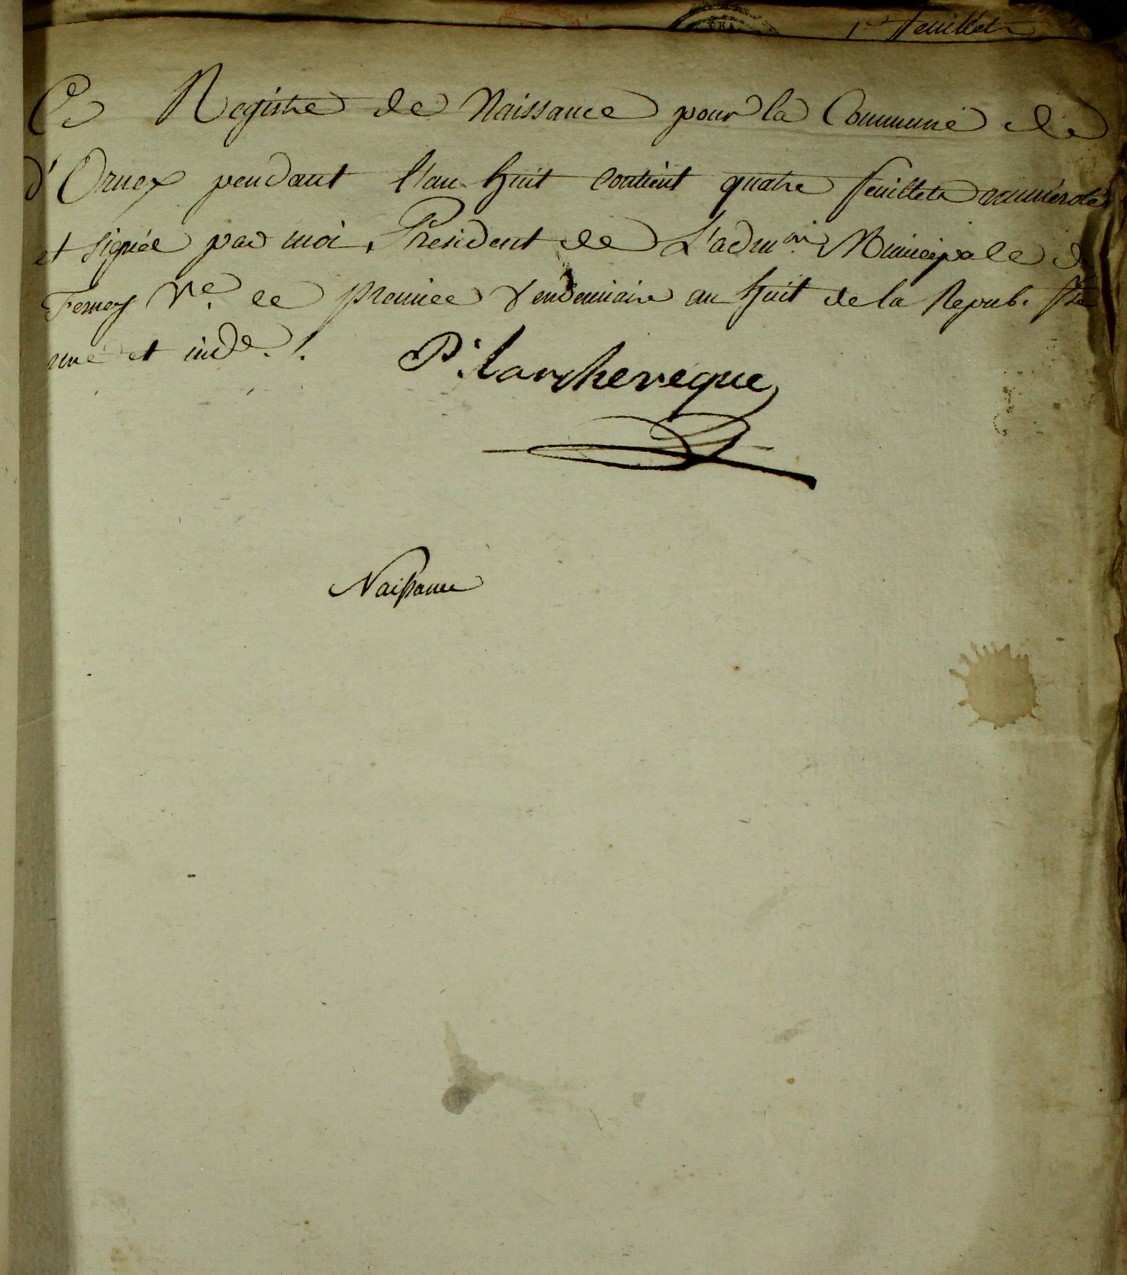 1er feuillet
Ce Registre de Naissance pour la Commune de
d'Ornex pendant l'an huit contient quatre feuillets numérotés
et signée par moi, President de L'admon Municipale de
Ferney Vre ce premier Vendemiaire an huit de la Repub. fse
une et indle.
P. Larcheveque
Naissance